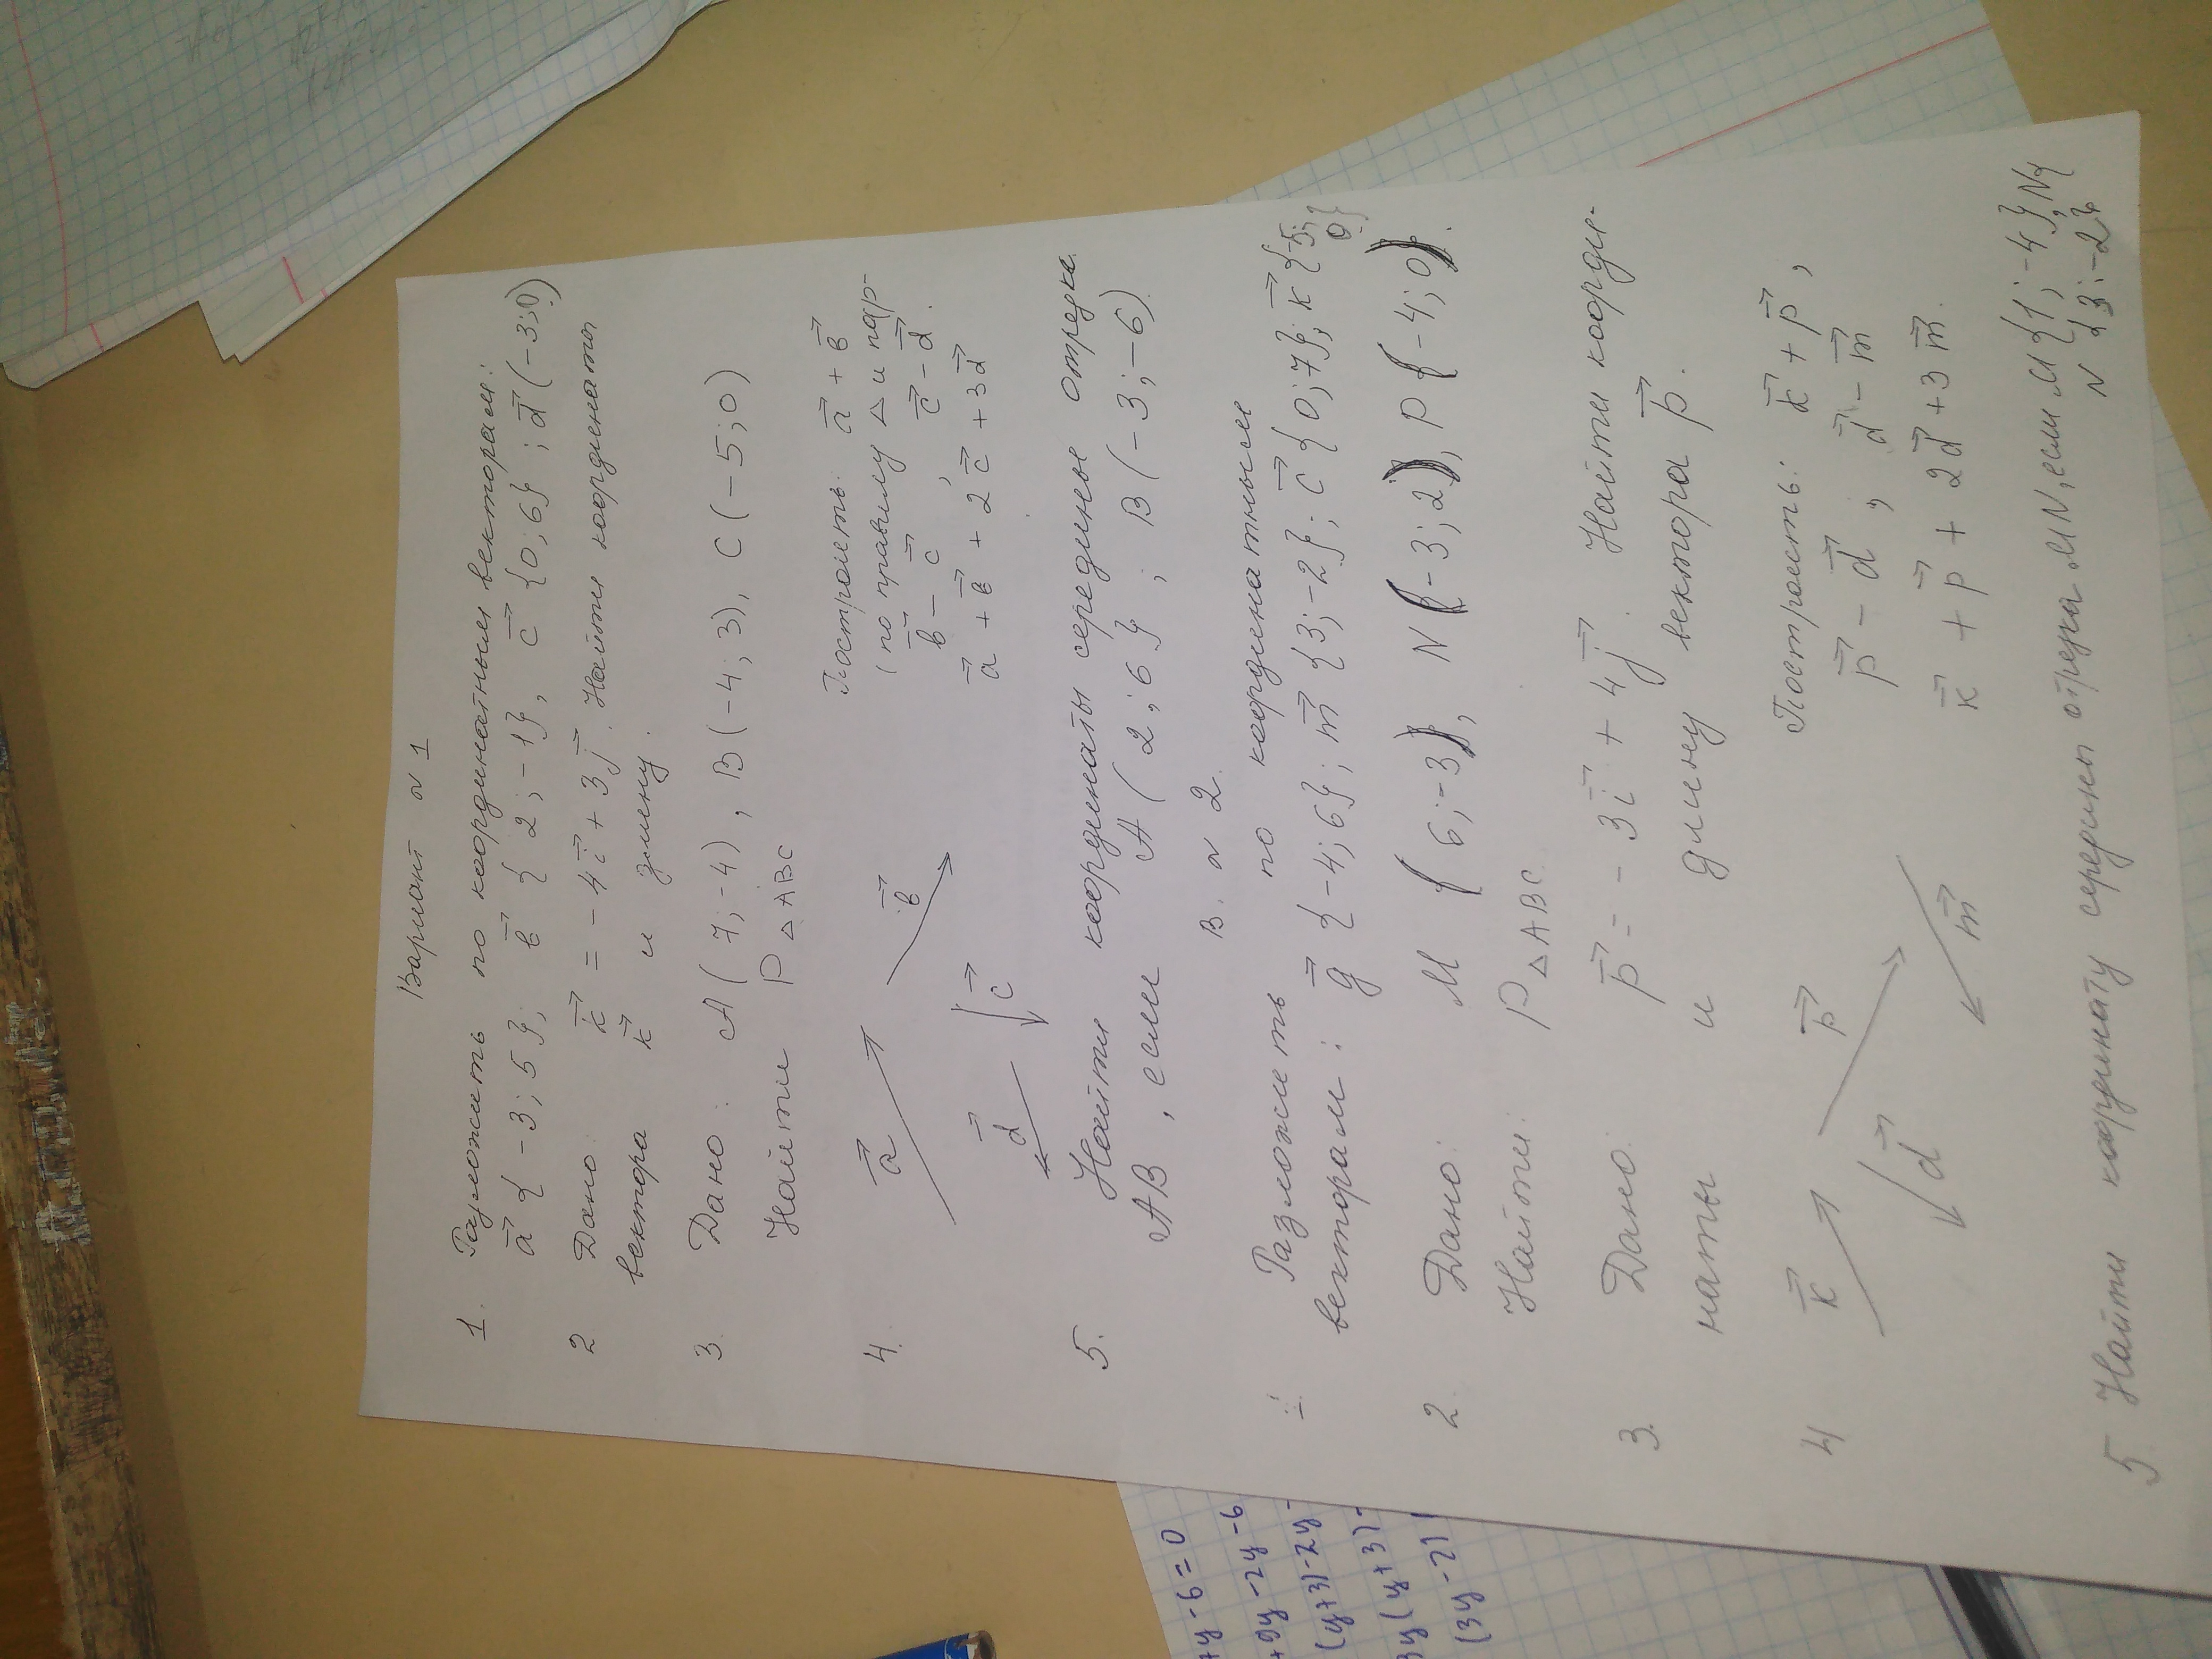 Вариант № 1
1. Разложить по координатным векторам:
a⃗ {-3; 5}; b⃗ {2; -1}, c⃗ {0; 6}; d⃗ (-3; 0)
2 Дано: k⃗ = -4i⃗ + 3j⃗. Найти координаты
вектора k⃗ и длину.
3. Дано: A(7; -4), B(-4; 3), C(-5; 0)
Найти P△ABC
4. a⃗ b⃗ c⃗ d⃗
Построить: a⃗ + b⃗
(по правилу △ и пар-
b⃗ - c⃗, c⃗ - d⃗.
a⃗ + b⃗ + 2c⃗ + 3d⃗
5. Найти координаты середины отрезка
AB, если A(2; 6}; B(-3; -6).
В. № 2.
1. Разложить по координатным
векторам: g⃗ {-4; 6}; m⃗ {3; -2}; c⃗ {0; 7}; k⃗ {-5; 0}
2. Дано: M (6; -3), N(-3; 2), P(-4; 0).
Найти: P△ABC.
3. Дано: p⃗ = -3i⃗ + 4j⃗. Найти коорди-
наты и длину вектора p⃗.
4 k⃗ p⃗ d⃗ m⃗
Построить: k⃗ + p⃗,
p⃗ - d⃗, d⃗ - m⃗
k⃗ + p⃗ + 2d⃗ + 3m⃗.
5 Найти координату середины отрезка MN, если M{1; -4}, N{
N {3; -2}
+y-6=0
+9y-2y-6
(y+3)-2y-
3y(y+3)-
(3y-2)